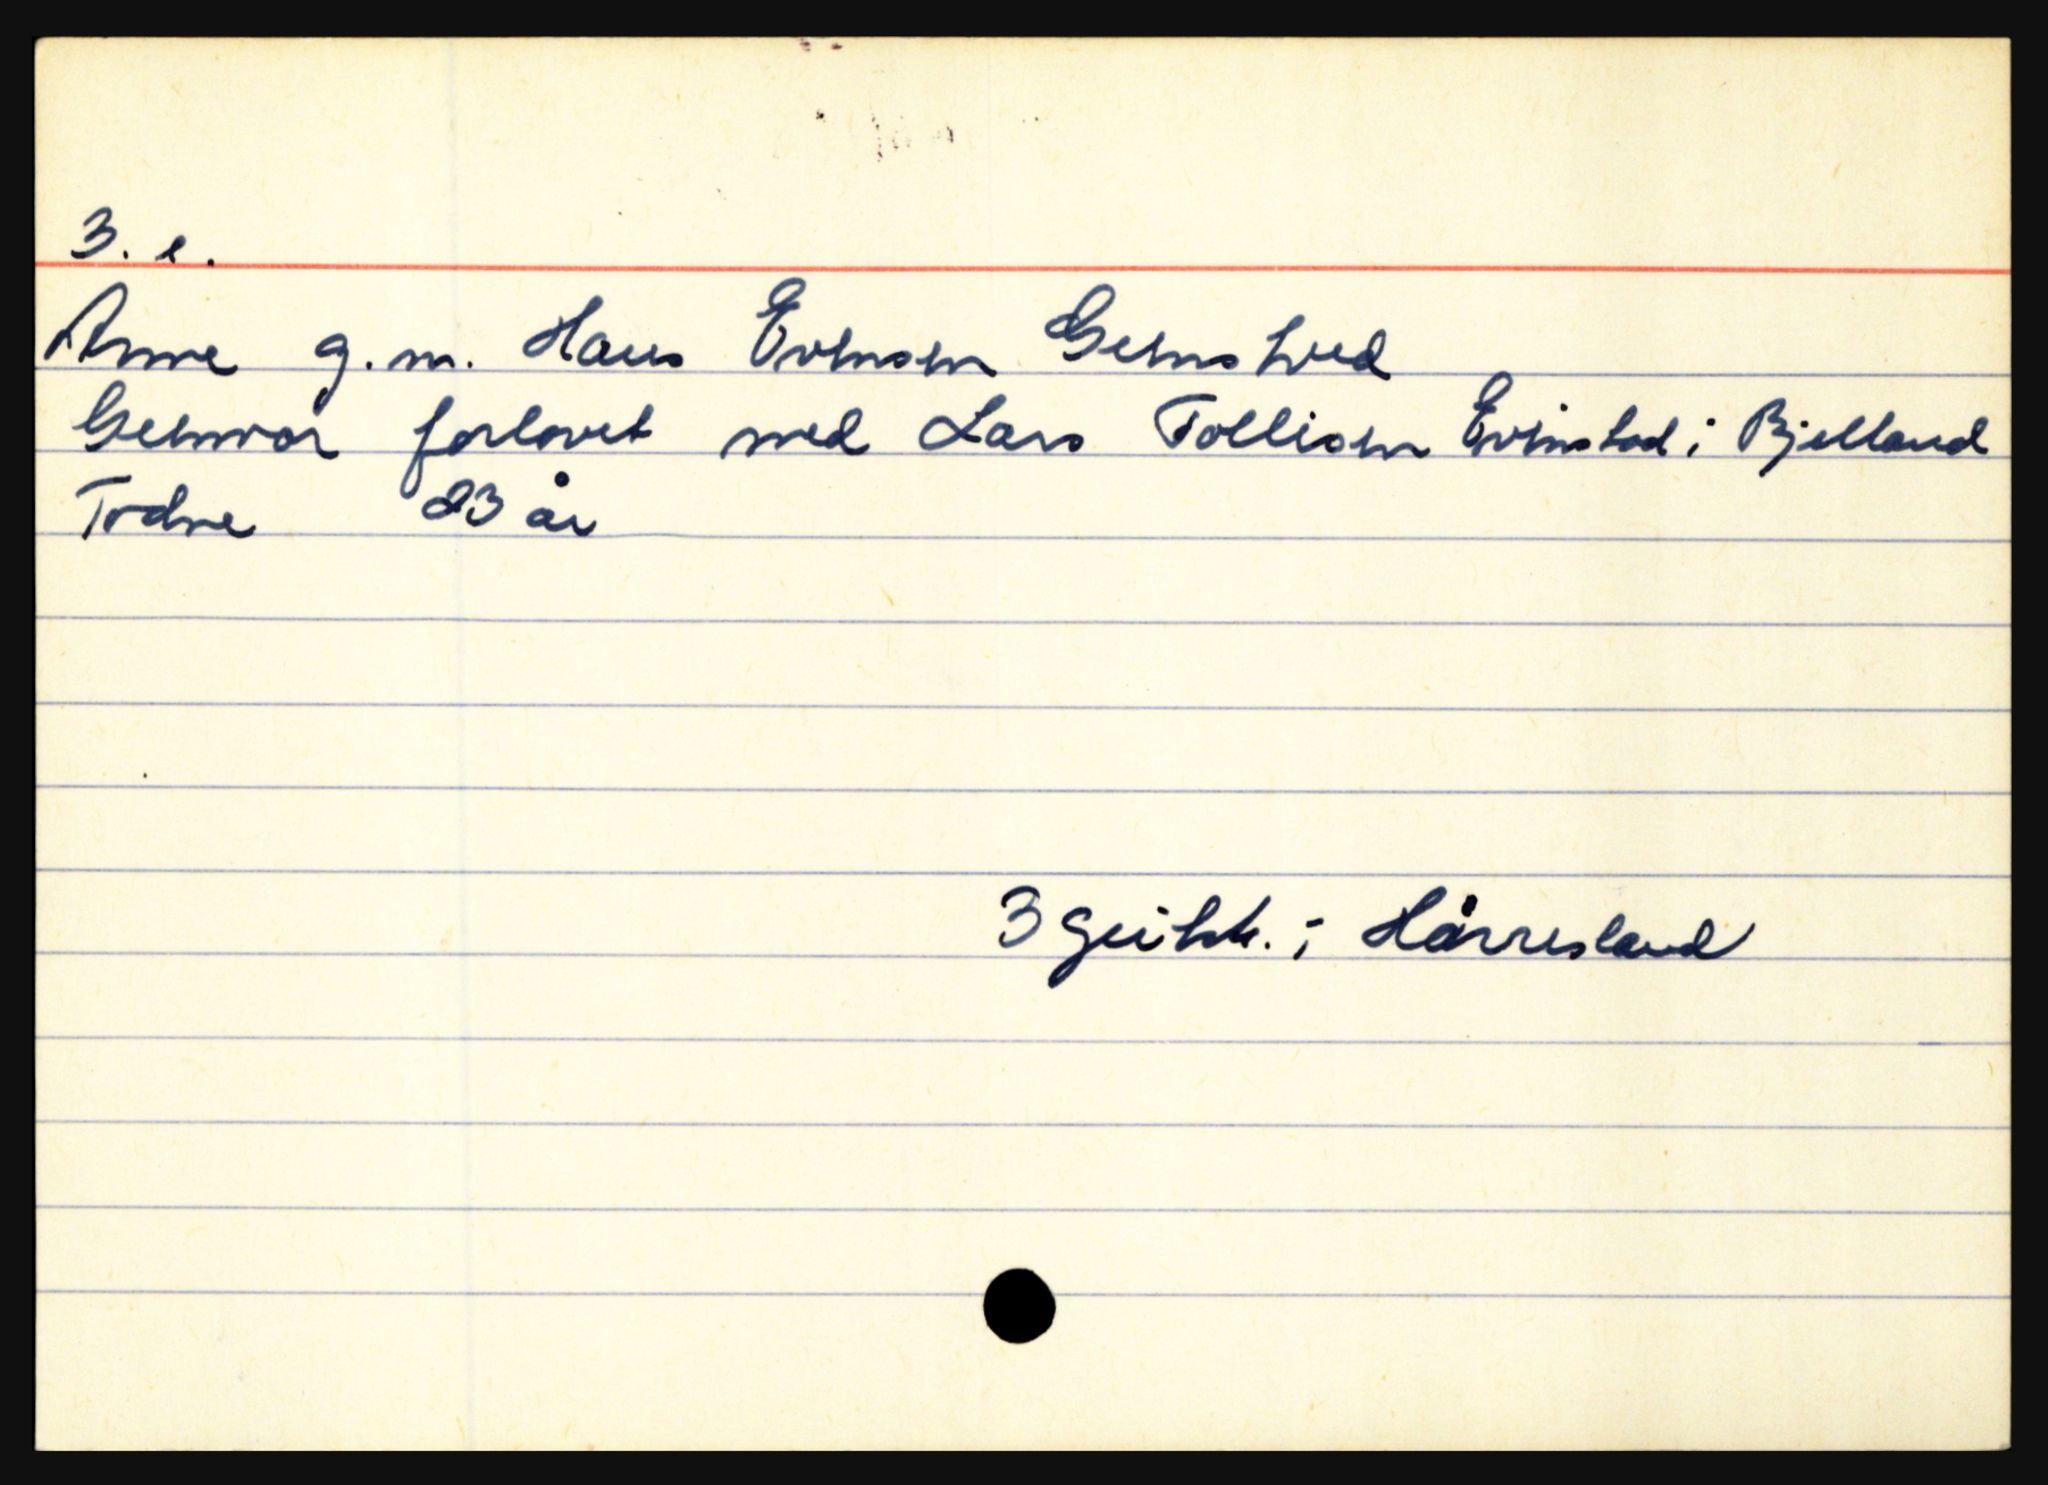 3. e.
Anne g. m. Hans Evensen Geimstved
Geirvor forlovet med Lars Tollisen Evinstad i Bjelland
Todne 23 år
3 huk. i Hårresland